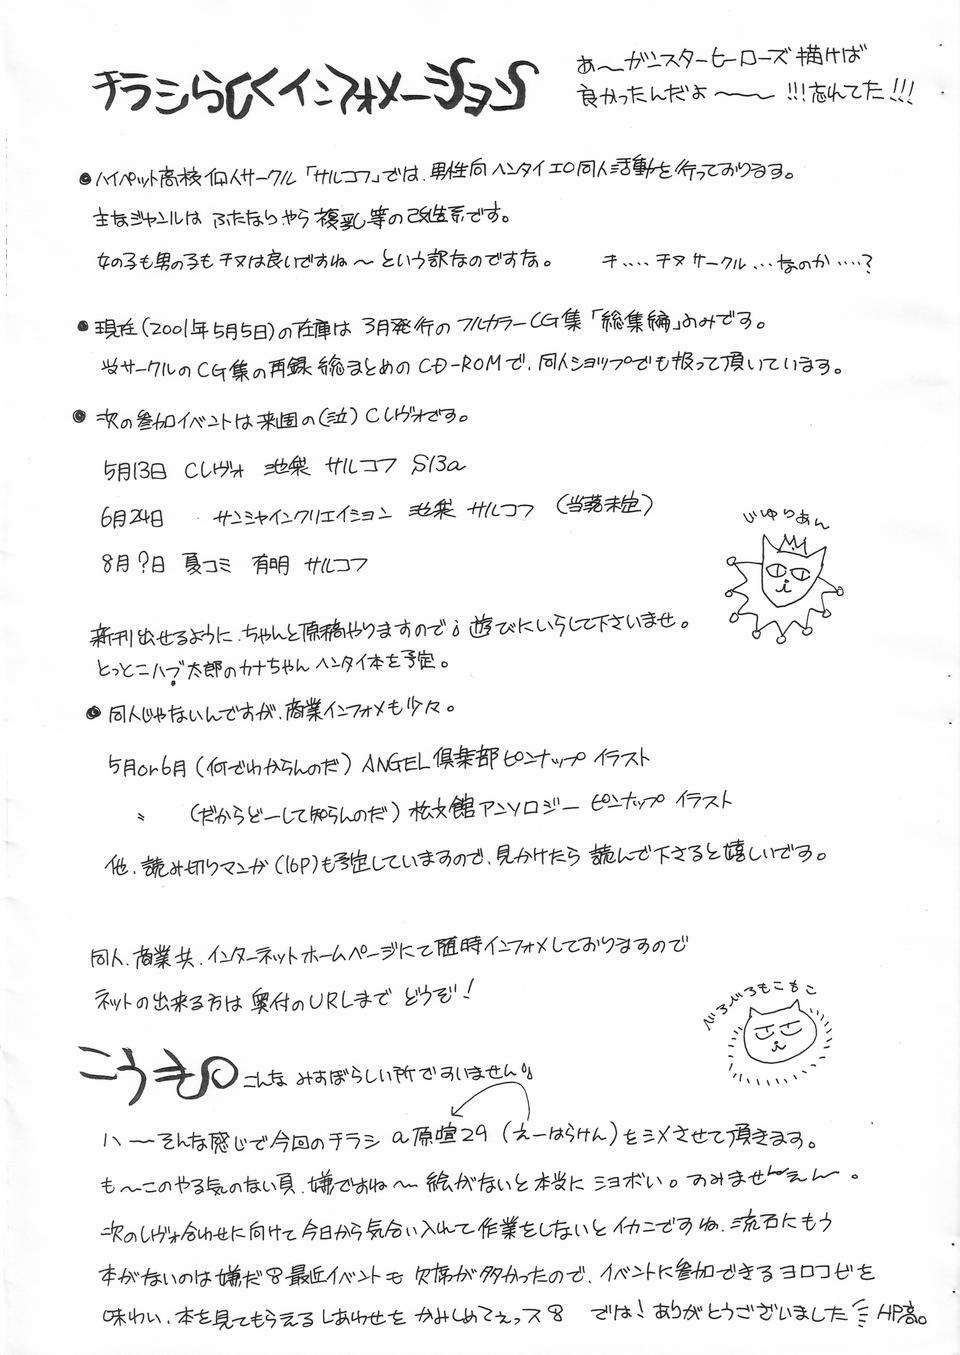 チラシらしくインフォメーション
あ〜ガンスターヒーローズ描けば
良かったんだよ〜〜 !!!忘れてた!!!
●ハイペット高校個人サークル「サルコフ」では、男性向ヘンタイエロ同人活動を行っております。
主なジャンルは ふたなりやら複乳等の改造系です。
女の子も男の子もチヌは良いですね〜という訳なのですな。 チ‥‥チヌサークル‥‥なのか‥‥?
●現在(2001年5月5日)の在庫は 3月発行の フルカラーCG集「総集編」のみです。
当サークルのCG集の再録総まとめのCD-ROMで、同人ショップでも扱って頂いています。
●次の参加イベントは来週の(泣)Cレヴォです。
5月13日 Cレヴォ 池袋 サルコフ S13a
6月24日 サンシャインクリエイション 池袋 サルコフ (当落未定)
8月?日 夏コミ 有明 サルコフ
じゆりあん
新刊出せるように、ちゃんと原稿やりますので、遊びにいらして下さいませ。
とっとこハブ太郎のカナちゃん ヘンタイ本を予定。
●同人じゃないんですが、商業インフォメも少々。
5月or6月(何でわからんのだ) ANGEL倶楽部ピンナップ イラスト
〃 (だからどーして知らんのだ) 松文館アンソロジー ピンナップ イラスト
他、読み切りマンガ(16P)も予定していますので、見かけたら 読んで下さると嬉しいです。
同人、商業共、インターネットホームページにて随時インフォメしておりますので
ネットの出来る方は 奥付のURLまで どうぞ!
べろべろもこもこ
こうき こんな みすぼらしい所ですいません
ハ〜そんな感じで今回のチラシ a原喧29(えーはらけん)をシメさせて頂きます。
も〜このやる気のない頁、嫌ですね〜絵がないと本当に ショボい。すみませ〜えん〜。
次のレヴォ合わせに向けて今日から気合い入れて作業をしないとイカンですね、流石にもう
本がないのは嫌だ 最近イベントも 欠席が多かったので、イベントに参加できるヨロコビを
味わい、本を見てもらえるしあわせを かみしめてぇっス では!ありがとうございました HP高。